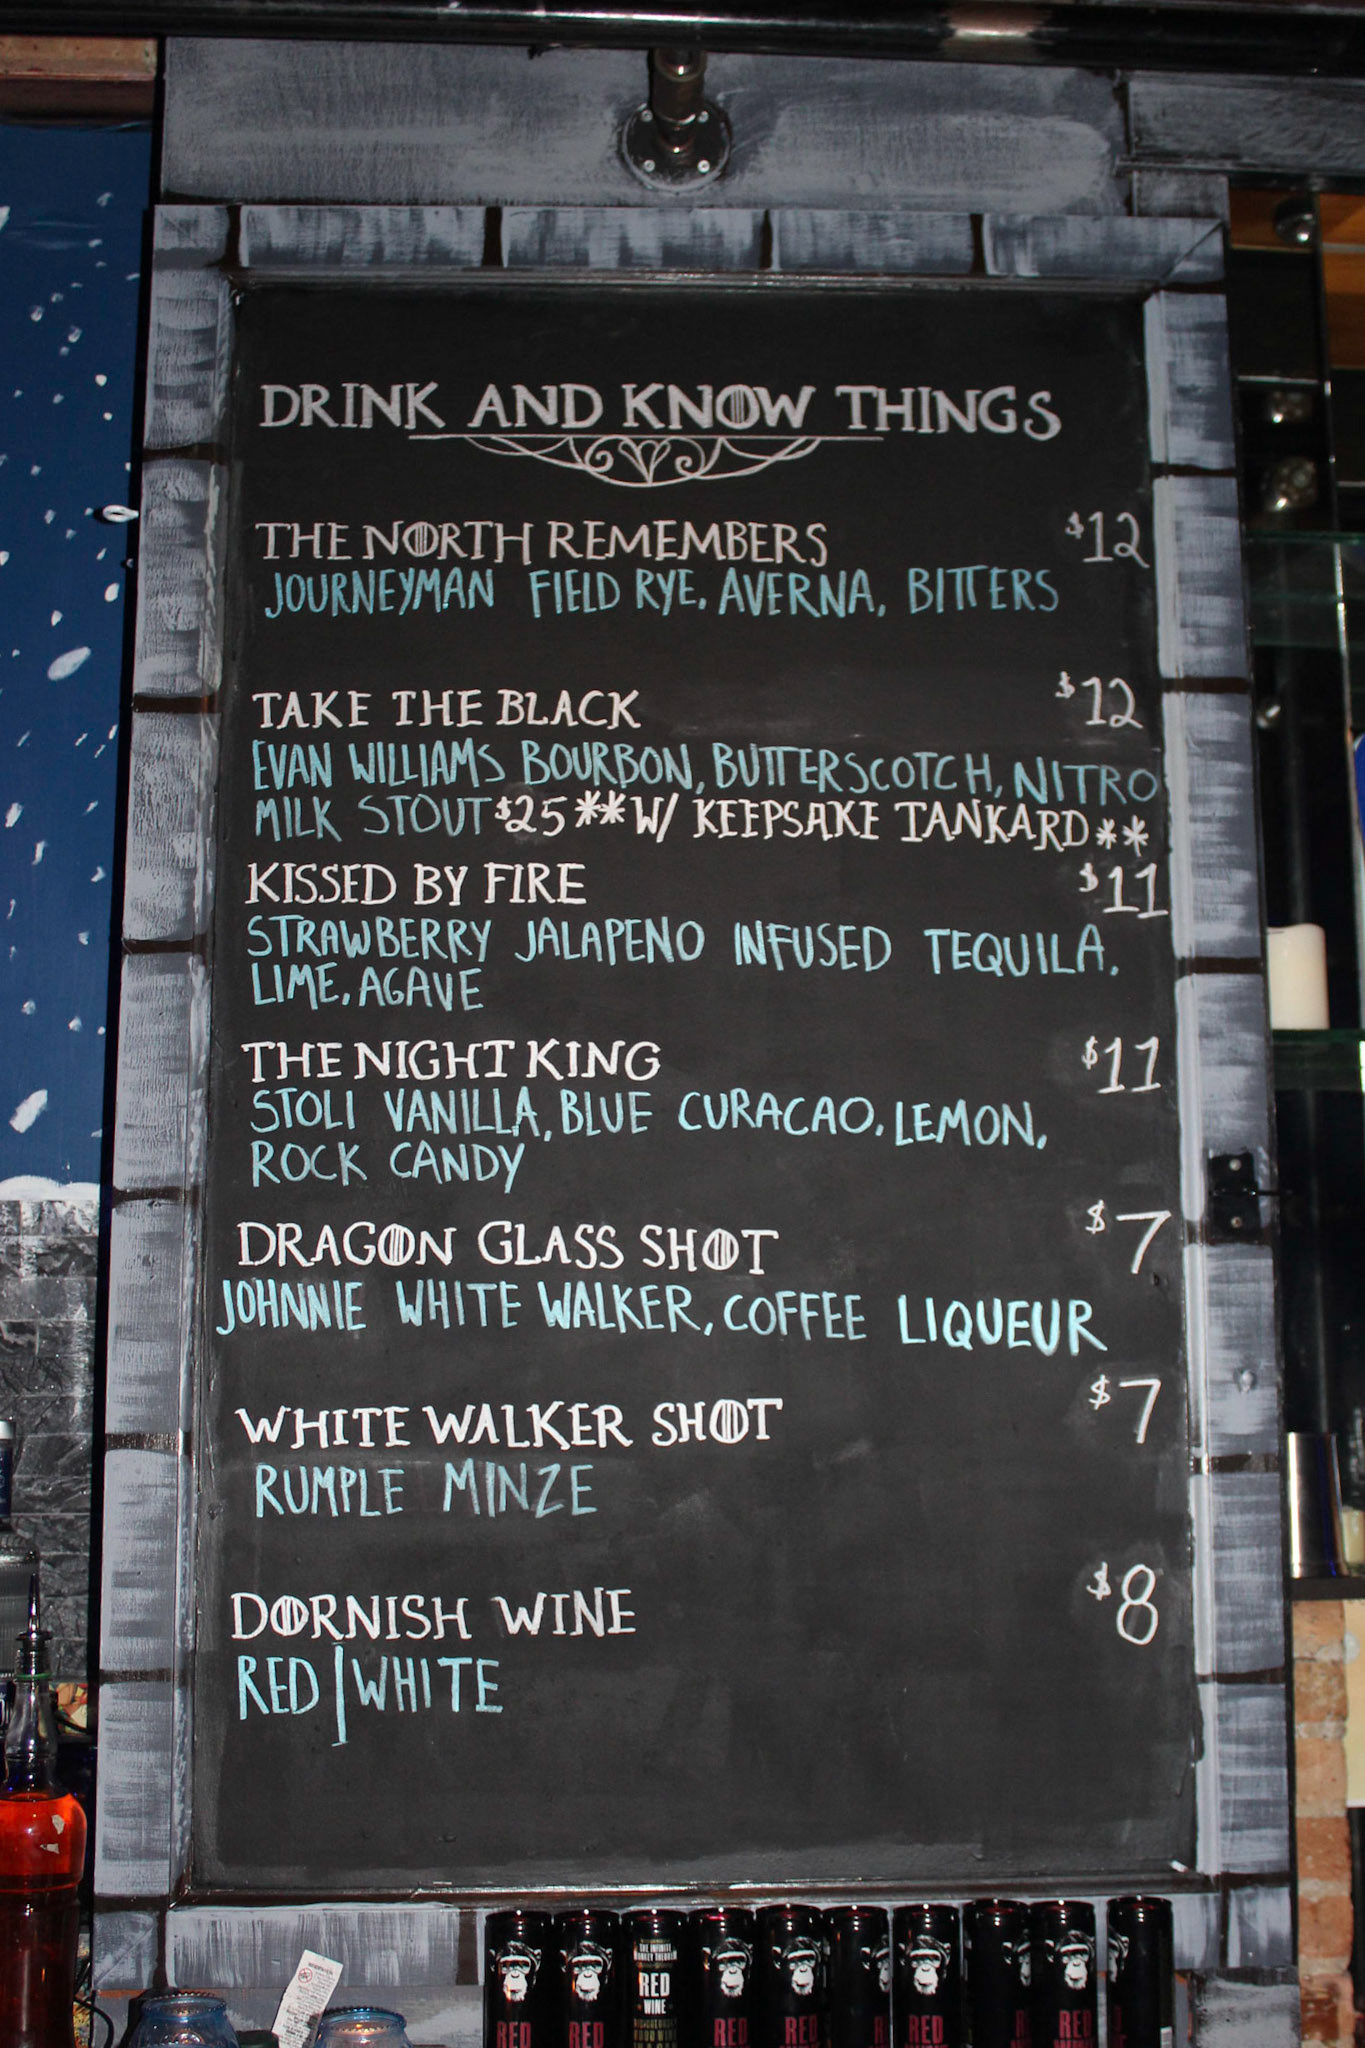 DRINK AND KNOW THINGS
THE NORTH REMEMBERS $12
JOURNEYMAN FIELD RYE, AVERNA, BITTERS
TAKE THE BLACK $12
EVAN WILLIAMS BOURBON, BUTTERSCOTCH, NITRO
MILK STOUT $25 **W/ KEEPSAKE TANKARD**
KISSED BY FIRE $11
STRAWBERRY JALAPENO INFUSED TEQUILA,
LIME, AGAVE
THE NIGHT KING $11
STOLI VANILLA, BLUE CURACAO, LEMON,
ROCK CANDY
DRAGON GLASS SHOT $7
JOHNNIE WHITE WALKER, COFFEE LIQUEUR
WHITE WALKER SHOT $7
RUMPLE MINZE
DORNISH WINE $8
RED | WHITE
THE INFINITE
MONKEY THEOREM
RED
WINE
RED
RED
RED
RED
RED
RED